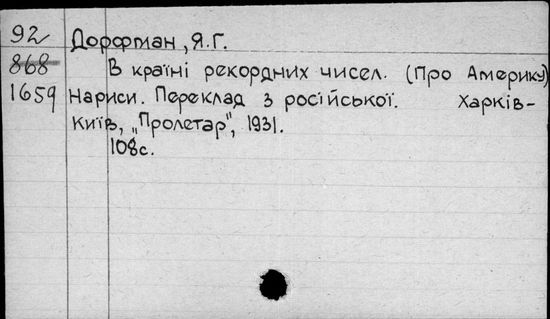 92 Дорфман, Я.Г.
868 В країні рекордних чисел. (Про Америку)
1659 Нариси. Переклад з російської. Харків-
Київ, „Пролетар", 1931.
108с.